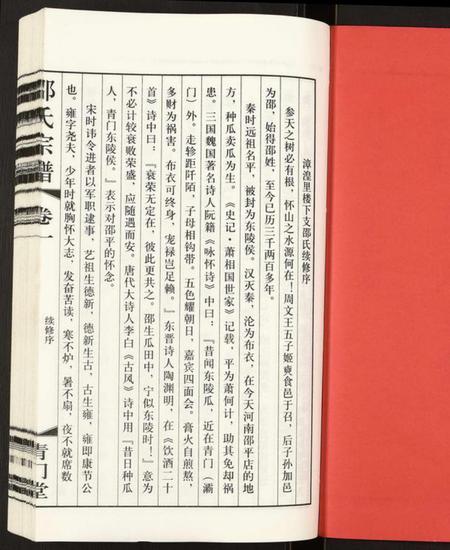 漳湟里楼下支邵氏续修序
参天之树必有根，怀山之水源何在！周文王五子姬奭食邑于召，后子孙加邑
为邵，始得邵姓，至今已历三千两百多年。
秦时远祖名平，被封为东陵侯。汉灭秦，沦为布衣，在今天河南邵平店的地
方，种瓜卖瓜为生。《史记·萧相国世家》记载，平为萧何计，助其免却祸
患。三国魏国著名诗人阮籍《咏怀诗》中曰：『昔闻东陵瓜，近在青门（灞
门）外。走轸距阡陌，子母相钩带。五色耀朝日，嘉宾四面会。膏火自煎熬，
多财为祸害。布衣可终身，宠禄岂足赖。』东晋诗人陶渊明，在《饮酒二十
首》诗中曰：『衰荣无定在，彼此更共之。邵生瓜田中，宁似东陵时！』意为
不必计较衰败荣盛，应随遇而安。唐代大诗人李白《古风》诗中用『昔日种瓜
人，青门东陵侯。』表示对邵平的怀念。
宋时讳令进者以军职逮事，艺祖生德新，德新生古，古生雍，雍即康节公
也。雍字尧夫，少年时就胸怀大志，发奋苦读，寒不炉，暑不扇，夜不就席数
邵氏宗谱 卷一
续修序
青门堂